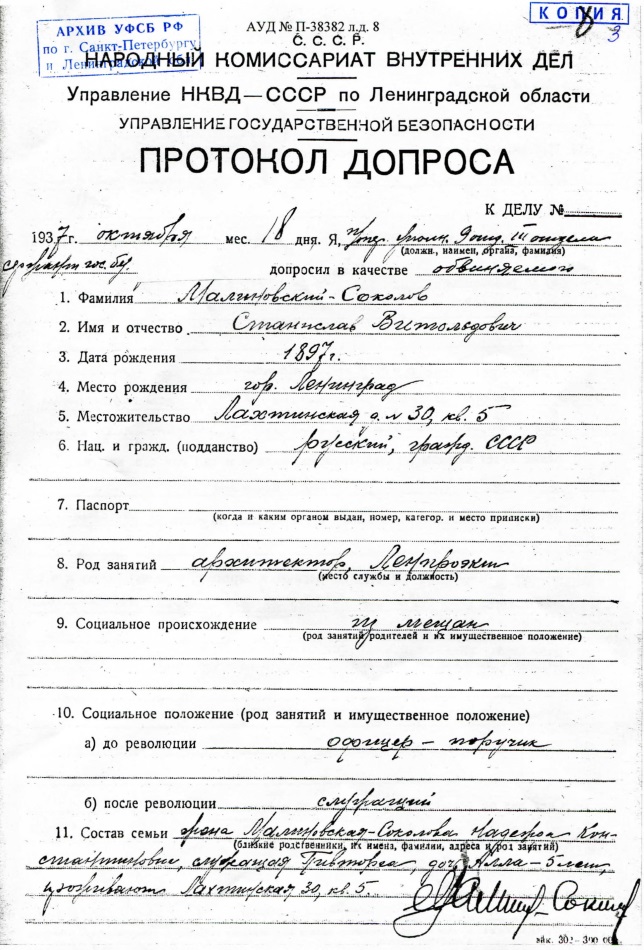 АРХИВ УФСБ РФ
по г. Санкт-Петербургу
и Ленинградской
КОПИЯ
3
АУД № П-38382 л.д. 8
С. С. С. Р.
НАРОДНЫЙ КОМИССАРИАТ ВНУТРЕННИХ ДЕЛ
Управление НКВД—СССР по Ленинградской области
УПРАВЛЕНИЕ ГОСУДАРСТВЕННОЙ БЕЗОПАСНОСТИ
ПРОТОКОЛ ДОПРОСА
К ДЕЛУ №
1937 г. октября мес. 18 дня. Я, отд. III отдела
(должн., наимен, органа, фамилия)
допросил в качестве обвиняемого
1. Фамилия Малиновский-Соколов
2. Имя и отчество Станислав Витольдович
3. Дата рождения 1897 г.
4. Место рождения гор. Ленинград
5. Местожительство Лахтинская д. № 30, кв. 5
6. Нац. и гражд. (подданство) русский, гражд. СССР
7. Паспорт
(когда и каким органом выдан, номер, категор. и место приписки)
8. Род занятий архитектор, Ленпроэкт
(место службы и должность)
9. Социальное происхождение из мещан
(род занятий родителей и их имущественное положение)
10. Социальное положение (род занятий и имущественное положение)
а) до революции офицер – поручик
б) после революции служащий
11. Состав семьи жена Малиновская-Соколова Надежда Кон-
(близкие родственники, их имена, фамилии, адреса и род занятий)
стантиновна, служащая дочь Алла – 5 лет,
проживают Лахтинская, 30, кв. 5.
зак. 302